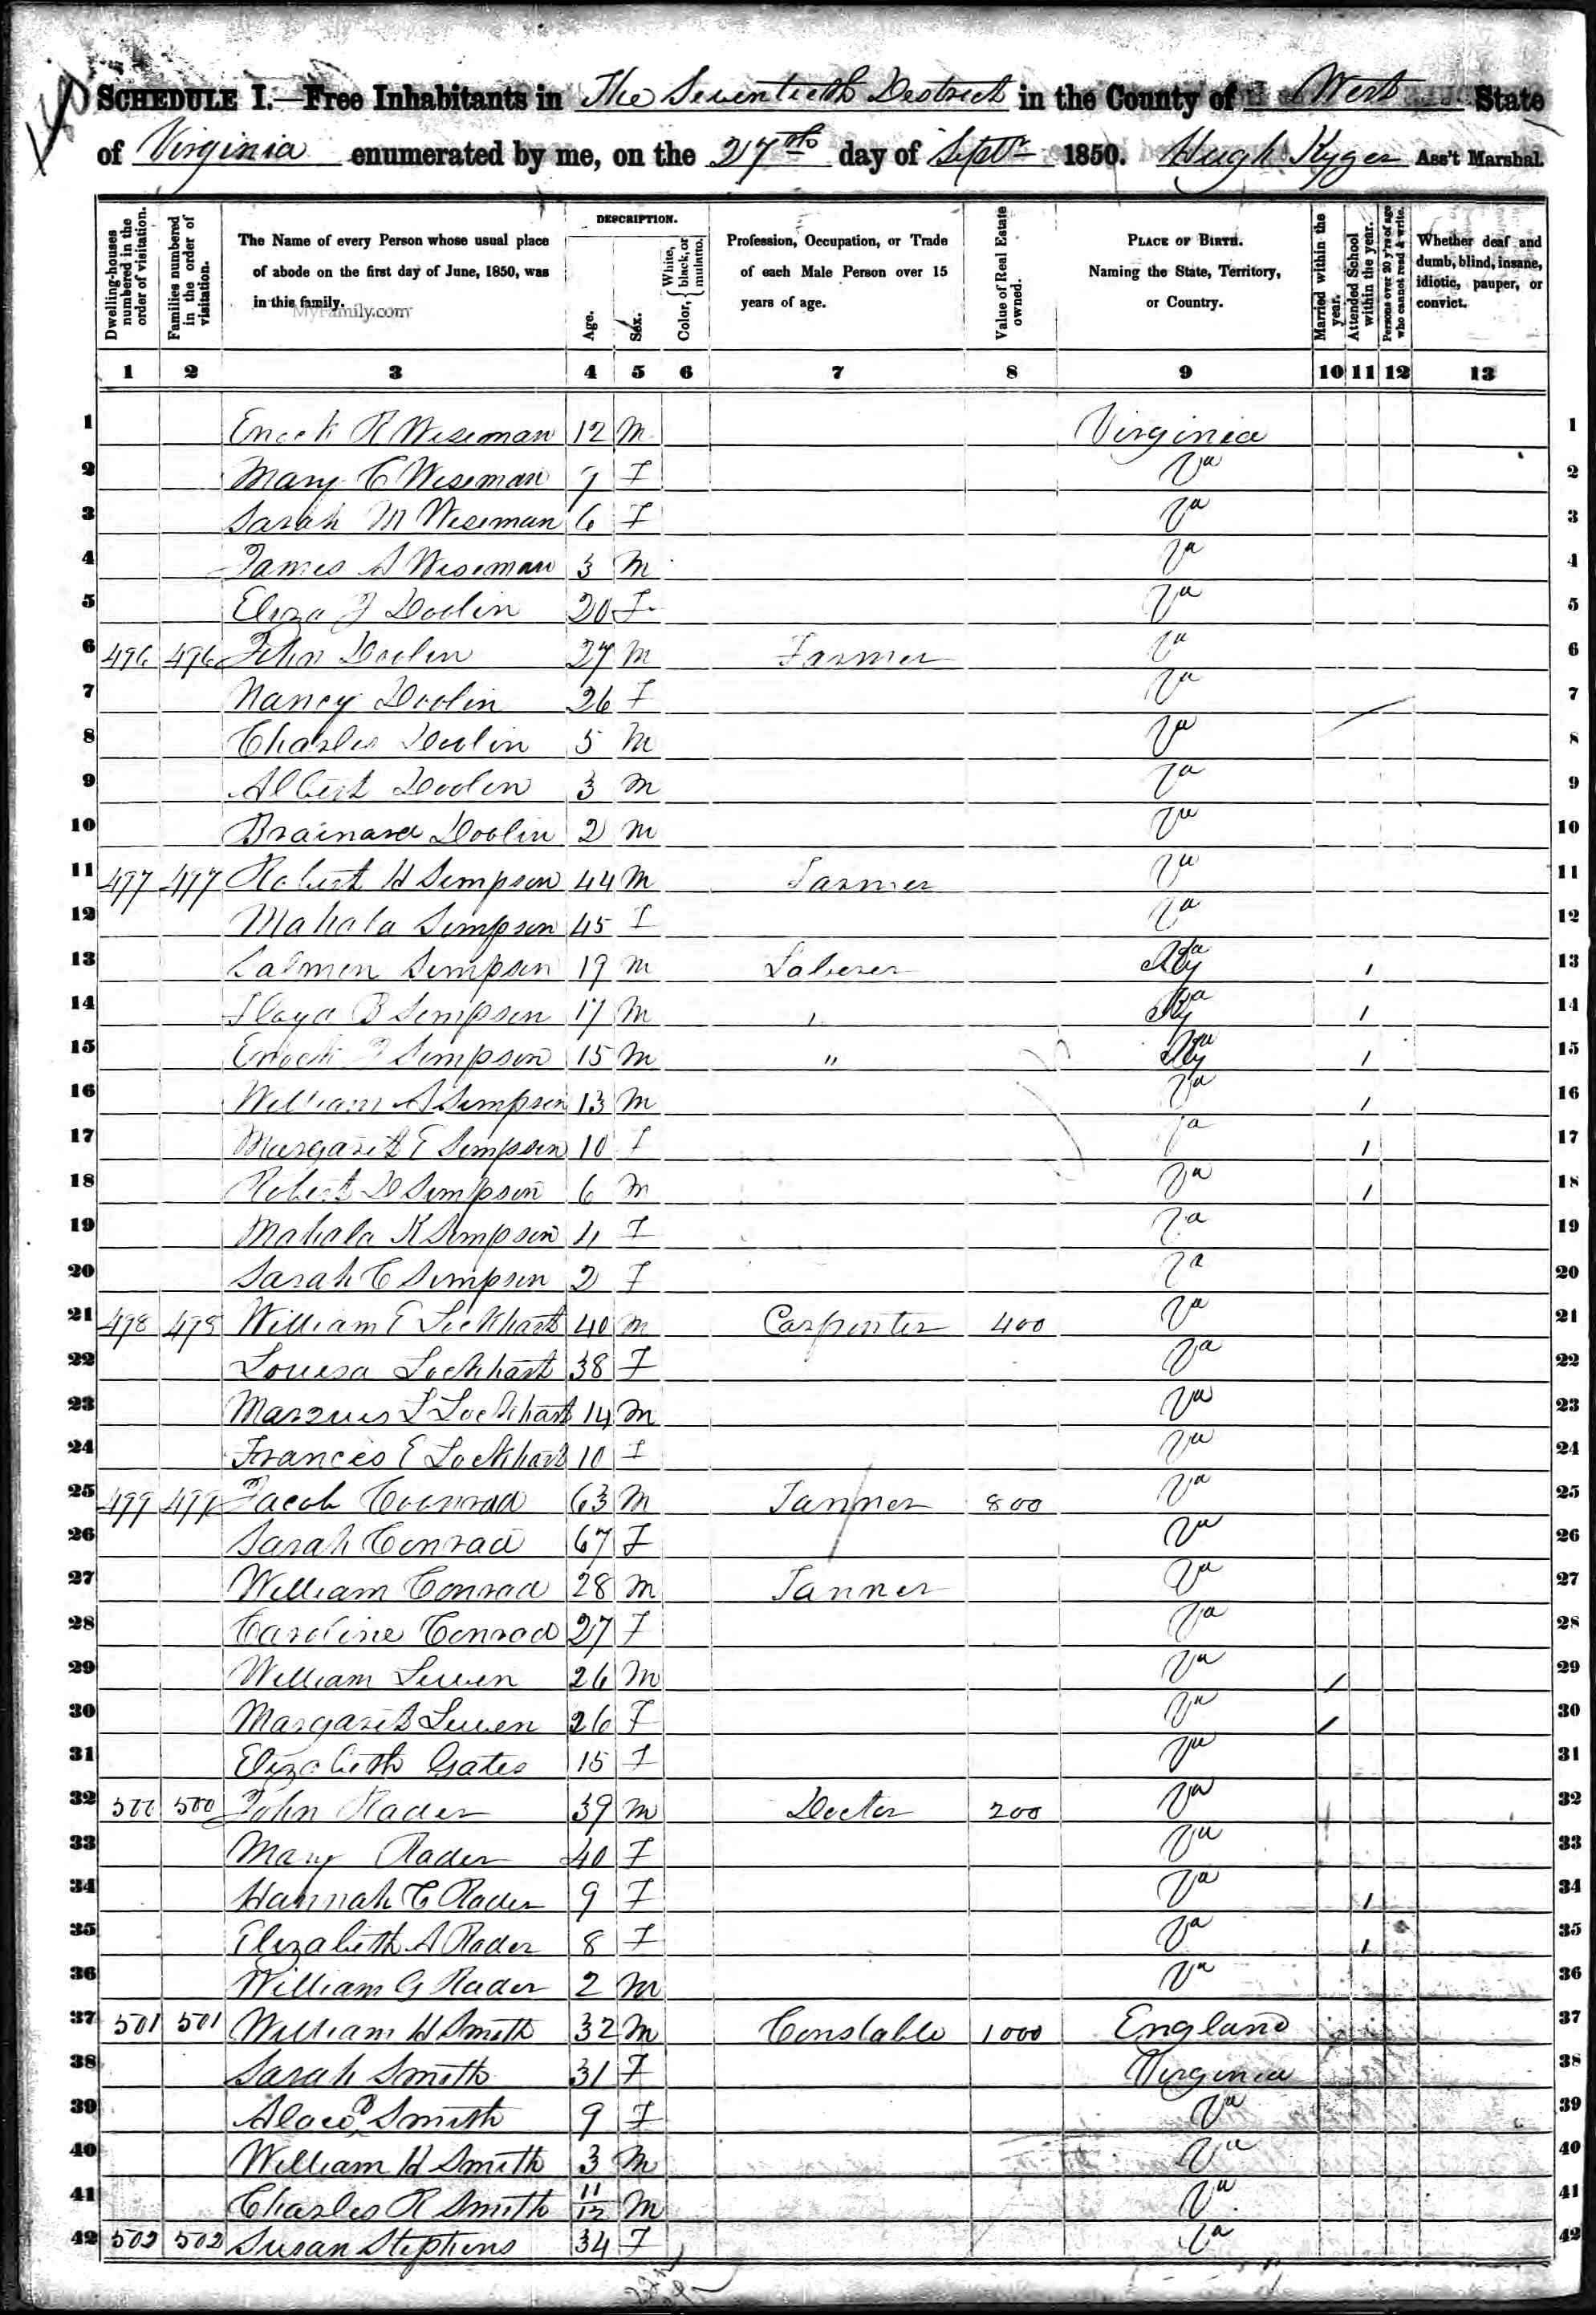 SCHEDULE I.—Free Inhabitants in The Seventieth District in the County of Wert State
of Virginia enumerated by me, on the 27th day of Septr 1850. Hugh Kyger Ass't Marshal.
Dwelling-houses numbered in the order of visitation.
Families numbered in the order of visitation.
The Name of every Person whose usual place of abode on the first day of June, 1850, was in this family.
MyFamily.com
DESCRIPTION.
Age.
Sex.
Color, { White, black, or mulatto.
Profession, Occupation, or Trade of each Male Person over 15 years of age.
Value of Real Estate owned.
PLACE OF BIRTH. Naming the State, Territory, or Country.
Married within the year.
Attended School within the year.
Persons over 20 y'rs of age who cannot read & write.
Whether deaf and dumb, blind, insane, idiotic, pauper, or convict.
1 2 3 4 5 6 7 8 9 10 11 12 13
1 Enoch R Wiseman 12 M Virginia 1
2 Mary C Wiseman 9 F Va 2
3 Sarah M Wiseman 6 F Va 3
4 James A Wiseman 3 M Va 4
5 Eliza J Doolin 20 F Va 5
6 496 496 John Doolin 27 M Farmer Va 6
7 Nancy Doolin 26 F Va 7
8 Charles Doolin 5 M Va 8
9 Albert Doolin 3 M Va 9
10 Brainard Doolin 2 M Va 10
11 497 497 Robert H Simpson 44 M Farmer Va 11
12 Mahala Simpson 45 F Va 12
13 Salmon Simpson 19 M Laborer Ky 1 13
14 Floyd B Simpson 17 M " Ky 1 14
15 Enoch Simpson 15 M " Ky 1 15
16 William A Simpson 13 M Va 1 16
17 Margaret E Simpson 10 F Va 1 17
18 Robert D Simpson 6 M Va 1 18
19 Mahala K Simpson 4 F Va 19
20 Sarah C Simpson 2 F Va 20
21 498 498 William E Lockhart 40 M Carpenter 400 Va 21
22 Louisa Lockhart 38 F Va 22
23 Marques L Lockhart 14 M Va 23
24 Frances E Lockhart 10 F Va 24
25 499 499 Jacob Coonrad 63 M Tanner 800 Va 25
26 Sarah Conrad 67 F Va 26
27 William Conrad 28 M Tanner Va 27
28 Caroline Conrad 27 F Va 28
29 William 26 M Va / 29
30 Margaret 26 F Va / 30
31 Elizabeth Gates 15 F Va 31
32 500 500 John Rader 39 M Docter 200 Va 32
33 Mary Rader 40 F Va 33
34 Hannah C Rader 9 F Va 1 34
35 Elizabeth A Rader 8 F Va 1 35
36 William G Rader 2 M Va 36
37 501 501 William H Smith 32 M Constable 1000 England 37
38 Sarah Smith 31 F Virginia 38
39 Smith 9 F Va 39
40 William H Smith 3 M Va 40
41 Charles R Smith 11/12 M Va 41
42 502 502 Susan Stephens 34 F Va 42